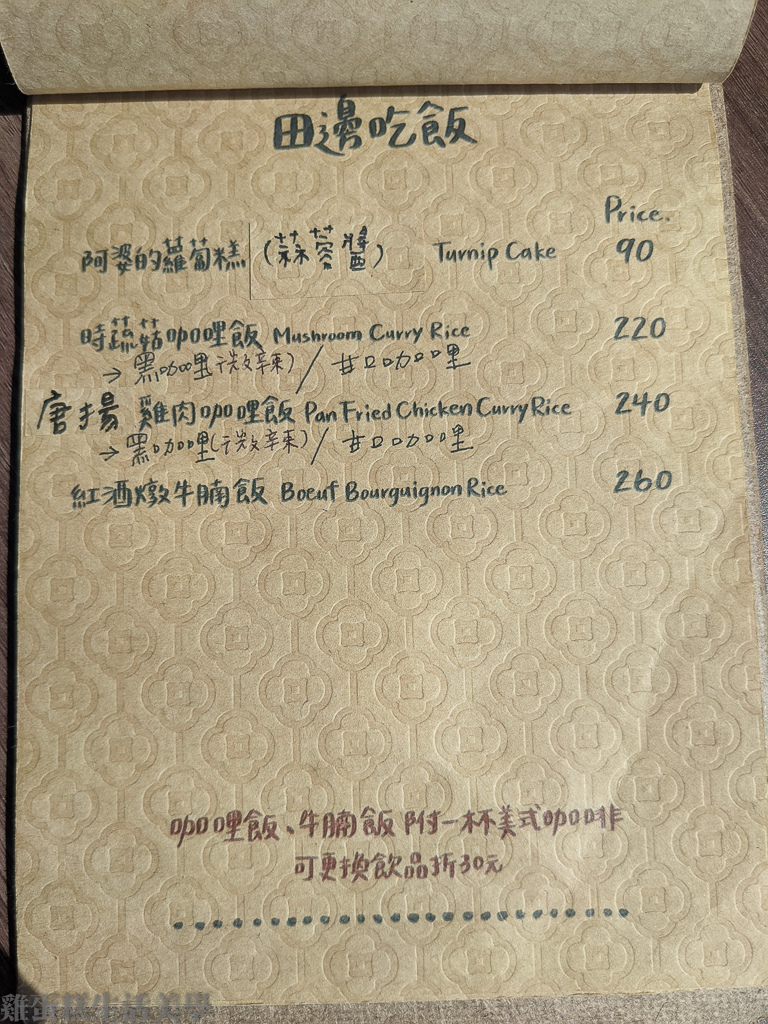 田邊吃飯
Price.
阿婆的蘿蔔糕 (蒜蓉醬) Turnip Cake 90
時蔬菇咖哩飯 Mushroom Curry Rice 220
→ 黑咖哩(微辛辣) / 甘口咖哩
唐揚 雞肉咖哩飯 Pan Fried Chicken Curry Rice 240
→ 黑咖哩(微辛辣) / 甘口咖哩
紅酒燉牛腩飯 Boeuf Bourguignon Rice 260
咖哩飯、牛腩飯 附一杯美式咖啡
可更換飲品折30元
雞蛋糕生活美學